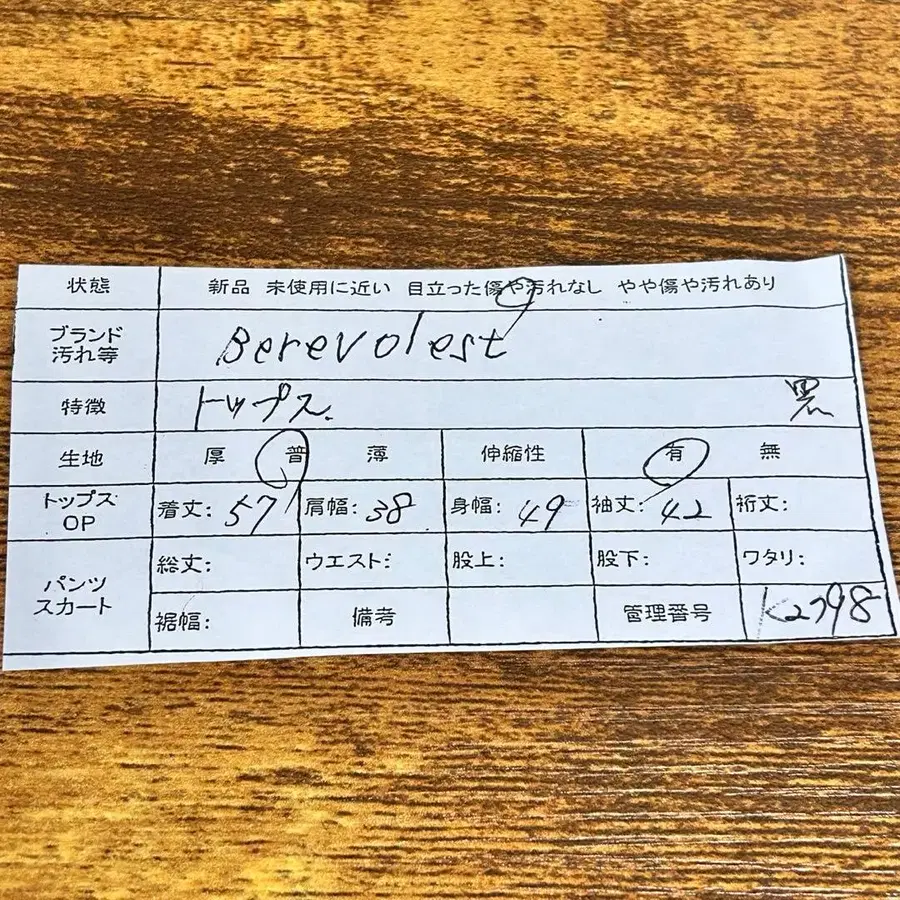 状態 新品 未使用に近い 目立った傷や汚れなし やや傷や汚れあり
ブランド
汚れ等 Berevolest
特徴 トップス. 黒
生地 厚 普 薄 伸縮性 有 無
トップス
OP 着丈: 57 肩幅: 38 身幅: 49 袖丈: 42 裄丈:
パンツ
スカート 総丈: ウエスト: 股上: 股下: ワタリ:
裾幅: 備考 管理番号 K2798